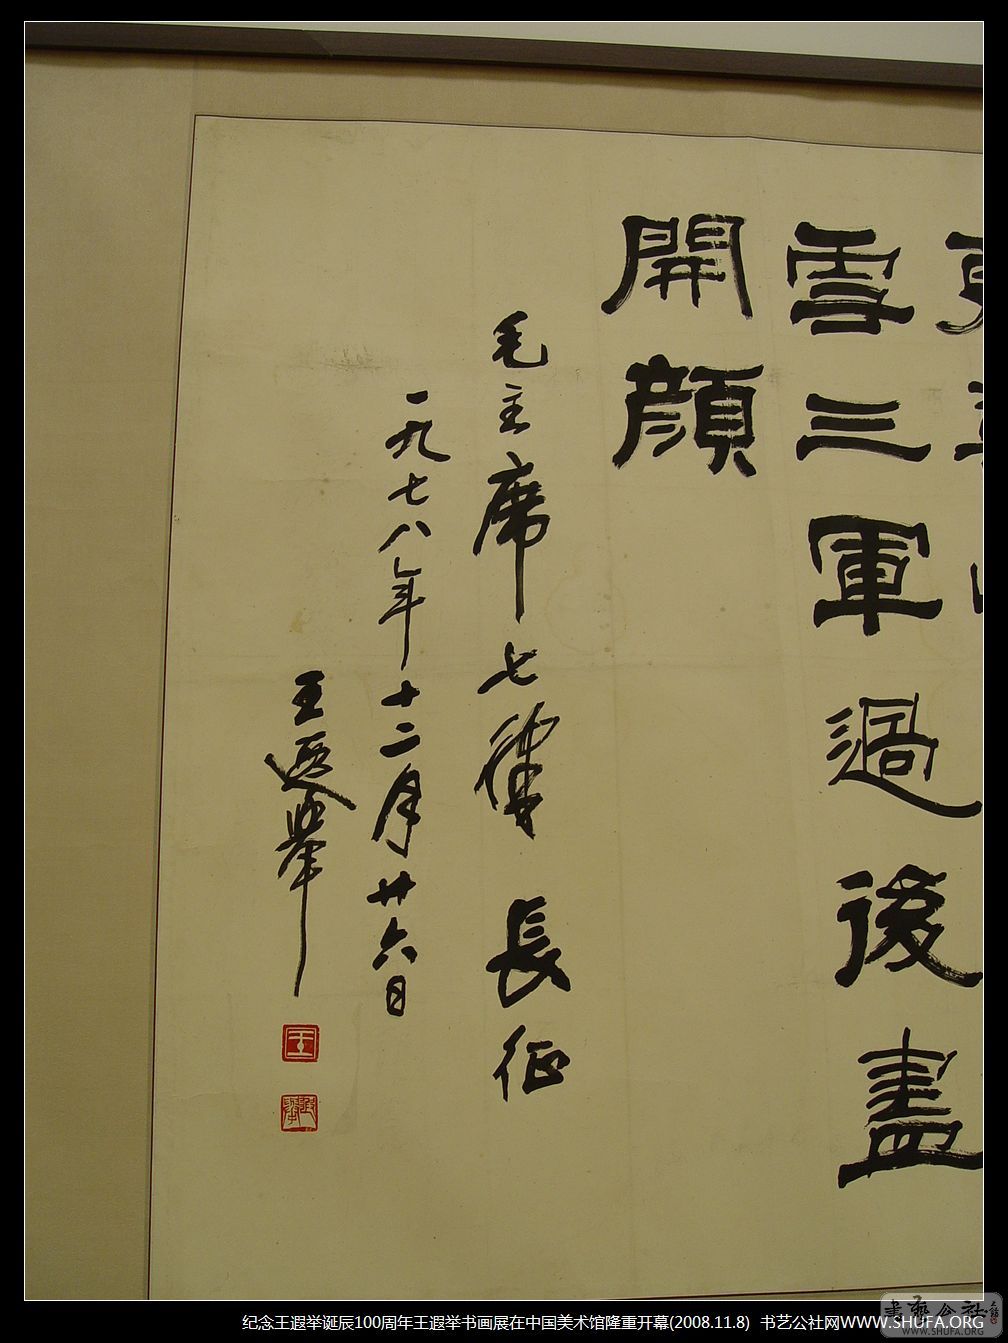 雪三軍過後盡
開顔
毛主席七律 長征
一九七八年十二月廿六日
王遐舉
王
纪念王遐举诞辰100周年王遐举书画展在中国美术馆隆重开幕(2008.11.8) 书艺公社网WWW.SHUFA.ORG
書藝公社
WWW.SHUFA.ORG